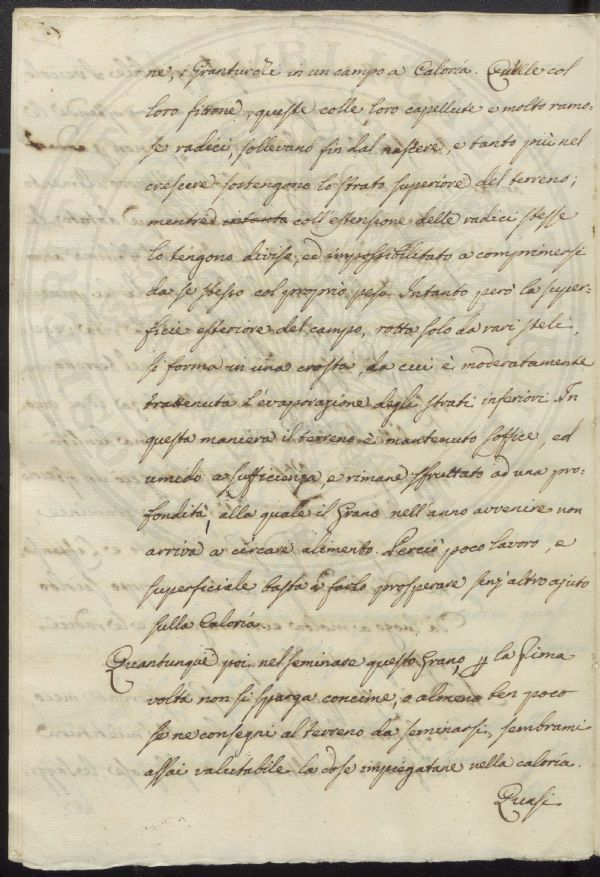 ne, i Granturchi in un campo a Caloría. Quelle col
loro fittone, queste colle loro capellute e molto ramo-
se radici, sollevano fin dal nascere, e tanto più nel
crescere sostengono lo strato superiore del terreno;
mentre intanto coll'estensione delle radici stesse
lo tengono diviso, ed impossibilitato a comprimersi
da se stesso col proprio peso. Intanto però la super-
ficie esteriore del campo, rotta solo da rari steli,
si forma in una crosta, da cui è moderatamente
trattenuta l'evaporazione degli strati inferiori. In
questa maniera il terreno è mantenuto soffice, ed
umido a sufficienza, e rimane sfruttato ad una pro-
fondità, alla quale il Grano nell'anno avvenire non
arriva a cercare alimento. Perciò poco lavoro, e
superficiale basta a farlo prosperare senz'altro ajuto
sulla Caloría.
Quantunque poi nel seminare questo Grano, p la prima
volta non si sparga concime, o almeno ben poco
se ne consegni al terreno da seminarsi, sembrami
assai valutabile la dose impiegatane nella caloría.
Quasi